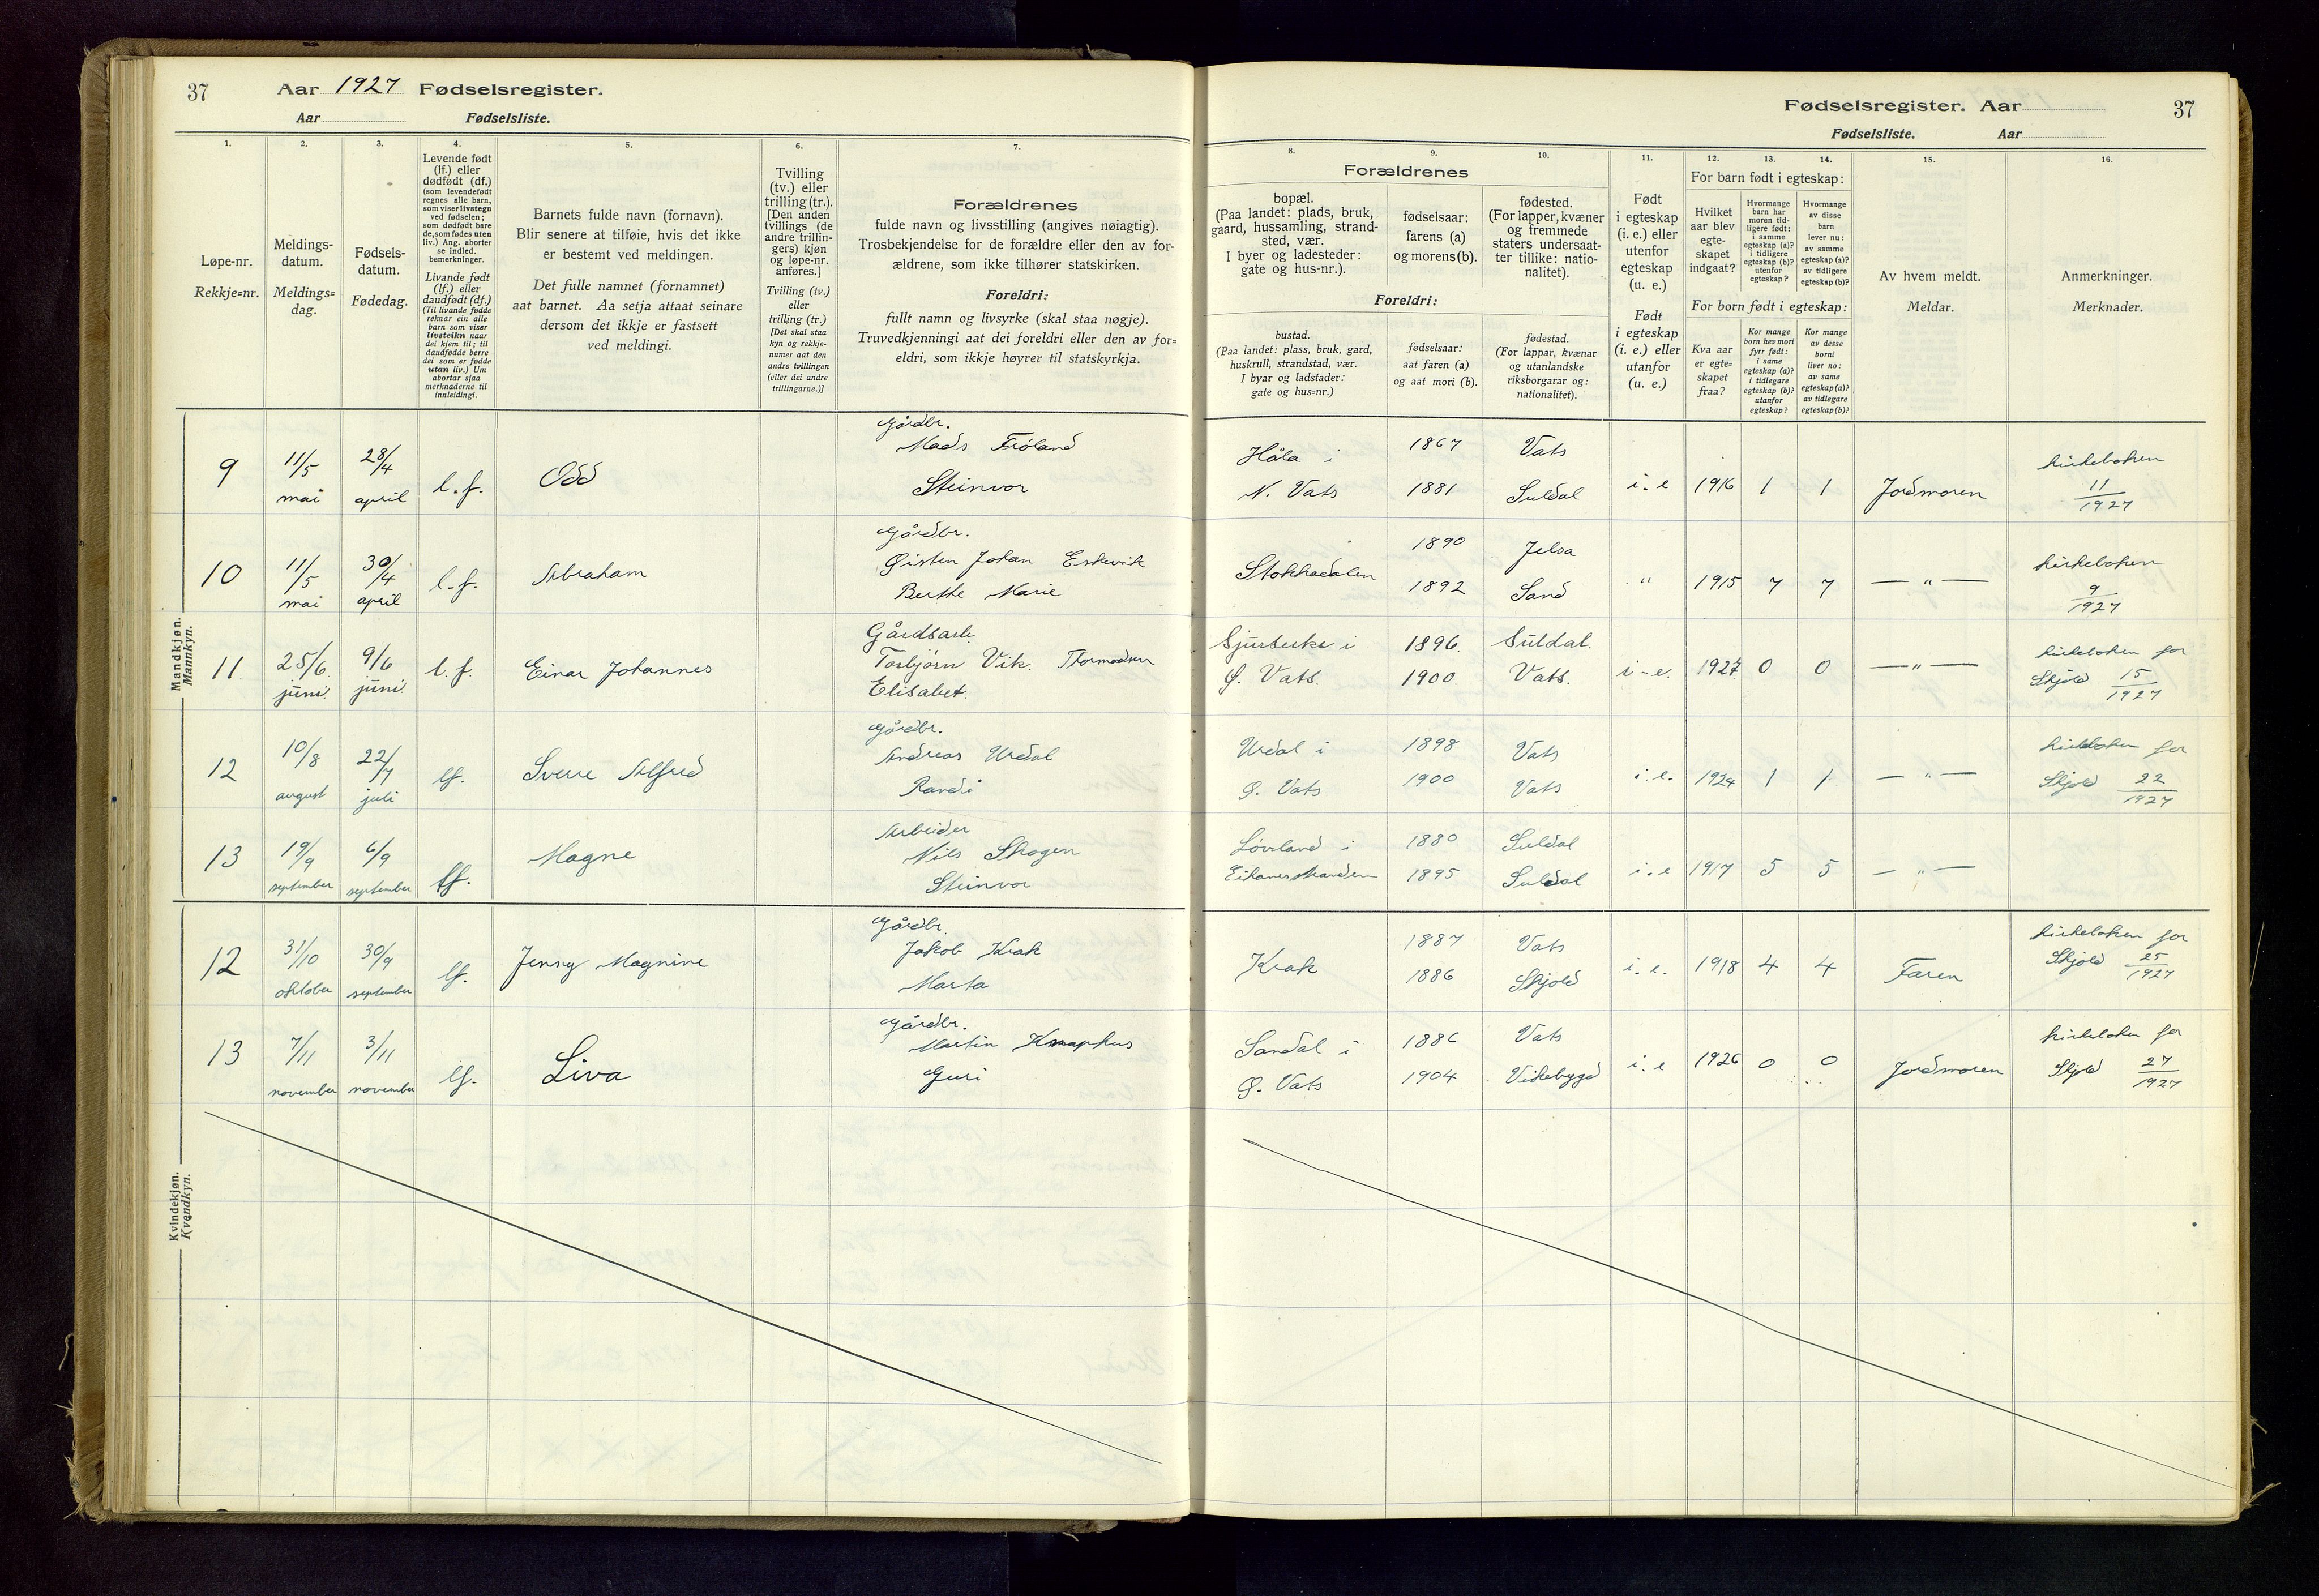 37
Aar 1927 Fødselsregister.
Aar Fødselsliste.
Fødselsregister. Aar 37
Fødselsliste. Aar
1. 2. 3. 4. 5. 6. 7.
Løpe-nr.
Rekkje=nr.
Meldings-
datum.
Meldings=
dag.
Fødsels-
datum.
Fødedag.
Levende født
(lf.) eller
dødfødt (df.)
(som levendefødt
regnes alle barn,
som viser livstegn
ved fødselen;
som dødfødt bare
de, som fødes uten
liv.) Ang. aborter
se indled.
bemerkninger.
Livande født
(lf.) eller
daudfødt (df.)
(Til livande fødde
reknar ein alle
barn som viser
livsteikn naar
dei kjem til; til
daudfødde berre
dei som er fødde
utan liv.) Um
abortar sjaa
merknaderne til
innleidingi.
Barnets fulde navn (fornavn).
Blir senere at tilføie, hvis det ikke
er bestemt ved meldingen.
Det fulle namnet (fornamnet)
aat barnet. Aa setja attaat seinare
dersom det ikkje er fastsett
ved meldingi.
Tvilling
(tv.) eller
trilling (tr.).
[Den anden
tvillings (de
andre trillin-
gers) kjøn
og løpe-nr.
anføres.]
Tvilling (tv.)
eller
trilling (tr.)
[Det skal staa
kyn og rekkje-
numer aat den
andre tvillingen
(eller dei andre
trillingarne.)]
Forældrenes
fulde navn og livsstilling (angives nøiagtig).
Trosbekjendelse for de forældre eller den av for-
ældrene, som ikke tilhører statskirken.
Foreldri:
fullt namn og livsyrke (skal staa nøgje).
Truvedkjenningi aat dei foreldri eller den av for=
eldri, som ikkje høyrer til statskyrkja.
8. 9. 10. 11. 12. 13. 14. 15. 16.
Forældrenes
bopæl.
(Paa landet: plads, bruk,
gaard, hussamling, strand-
sted, vær.
I byer og ladesteder:
gate og hus-nr.).
fødselsaar:
farens (a)
og morens (b).
fødested.
(For lapper, kvæner
og fremmede
staters undersaat-
ter tillike: natio-
nalitet).
Foreldri:
bustad.
(Paa landet: plass, bruk, gard,
huskrull, strandstad, vær.
I byar og ladstader:
gate og hus=nr.)
fødselsaar:
aat faren (a)
og aat mori (b).
fødestad.
(For lappar, kvænar
og utanlandske
riksborgarar og:
nationalitet).
Født
i egteskap
(i. e.) eller
utenfor
egteskap
(u. e.)
Født
i egteskap
(i. e.) eller
utanfor
(u. e.)
For barn født i egteskap:
Hvilket
aar blev
egte-
skapet
indgaat?
Hvormange
barn har
moren tid-
ligere født:
i samme
egteskap (a)?
i tidligere
egteskap (b)?
utenfor
egteskap?
Hvormange
av disse
barn
lever nu:
av samme
egteskap (a)?
av tidligere
egteskap (b)?
For born født i egteskap:
Kva aar
er egte-
skapet
fraa?
Kor mange
born hev mori
fyrr født:
i same
egteskap (a)?
i tidlegare
egteskap (b)?
utanfor
egteskap?
Kor mange
av desse
borni
liver no:
av same
egteskap (a)?
av tidlegare
egteskap (b)?
Av hvem meldt.
Meldar.
Anmerkninger.
Merknader.
Mandkjøn.
Mannkyn.
9 11/5 mai 28/4 april l.f. Odd Gårdbr. Mads Frøland Steinvor
Håla i N. Vats 1867 1881 Vats Suldal i.e 1916 1 1 Jordmoren kirkeboken 11/1927
10 11/5 mai 30/4 april l.f. Abraham Gårdbr. Øisten Johan Eskevik Berthe Marie
Stokkadalen 1890 1892 Jelsa Sand " 1915 7 7 — " — kirkeboken 9/1927
11 25/6 juni. 9/6 juni. l.f. Einar Johannes Gårdsarb. Torbjørn Vik. Thormodsen Elisabet.
i Ø. Vats. 1896. 1900. Suldal. Vats. i-e. 1927 0 0 — " — kirkeboken for Skjold 15/1927
12 10/8 august 22/7 juli lf. Sverre Alfred Gårdbr. Andreas Urdal Randi
Urdal i Ø. Vats 1898 1900 Vats Vats i.e. 1924 1 1 — " — kirkeboken for Skjold 22/1927
13 19/9 september 6/9 september lf. Magne Arbeider Nils Skogen Steinvor
Løvland i 1880 1895 Suldal Suldal i.e 1917 5 5 — " —
Kvindekjøn.
Kvendkyn.
12 31/10 oktober 30/9 september lf. Jenny Magnine Gårdbr. Jakob Krak Marta
Krak 1887 1886 Vats Skjold i.e. 1918 4 4 Faren kirkeboken for Skjold 25/1927
13 7/11 november 3/11 november lf. Liva Gårdbr. Martin Knaphus Guri
Sandal i Ø. Vats 1886 1904 Vats Vikebygd i.e 1926 0 0 Jordmoren kirkeboken for Skjold 27/1927